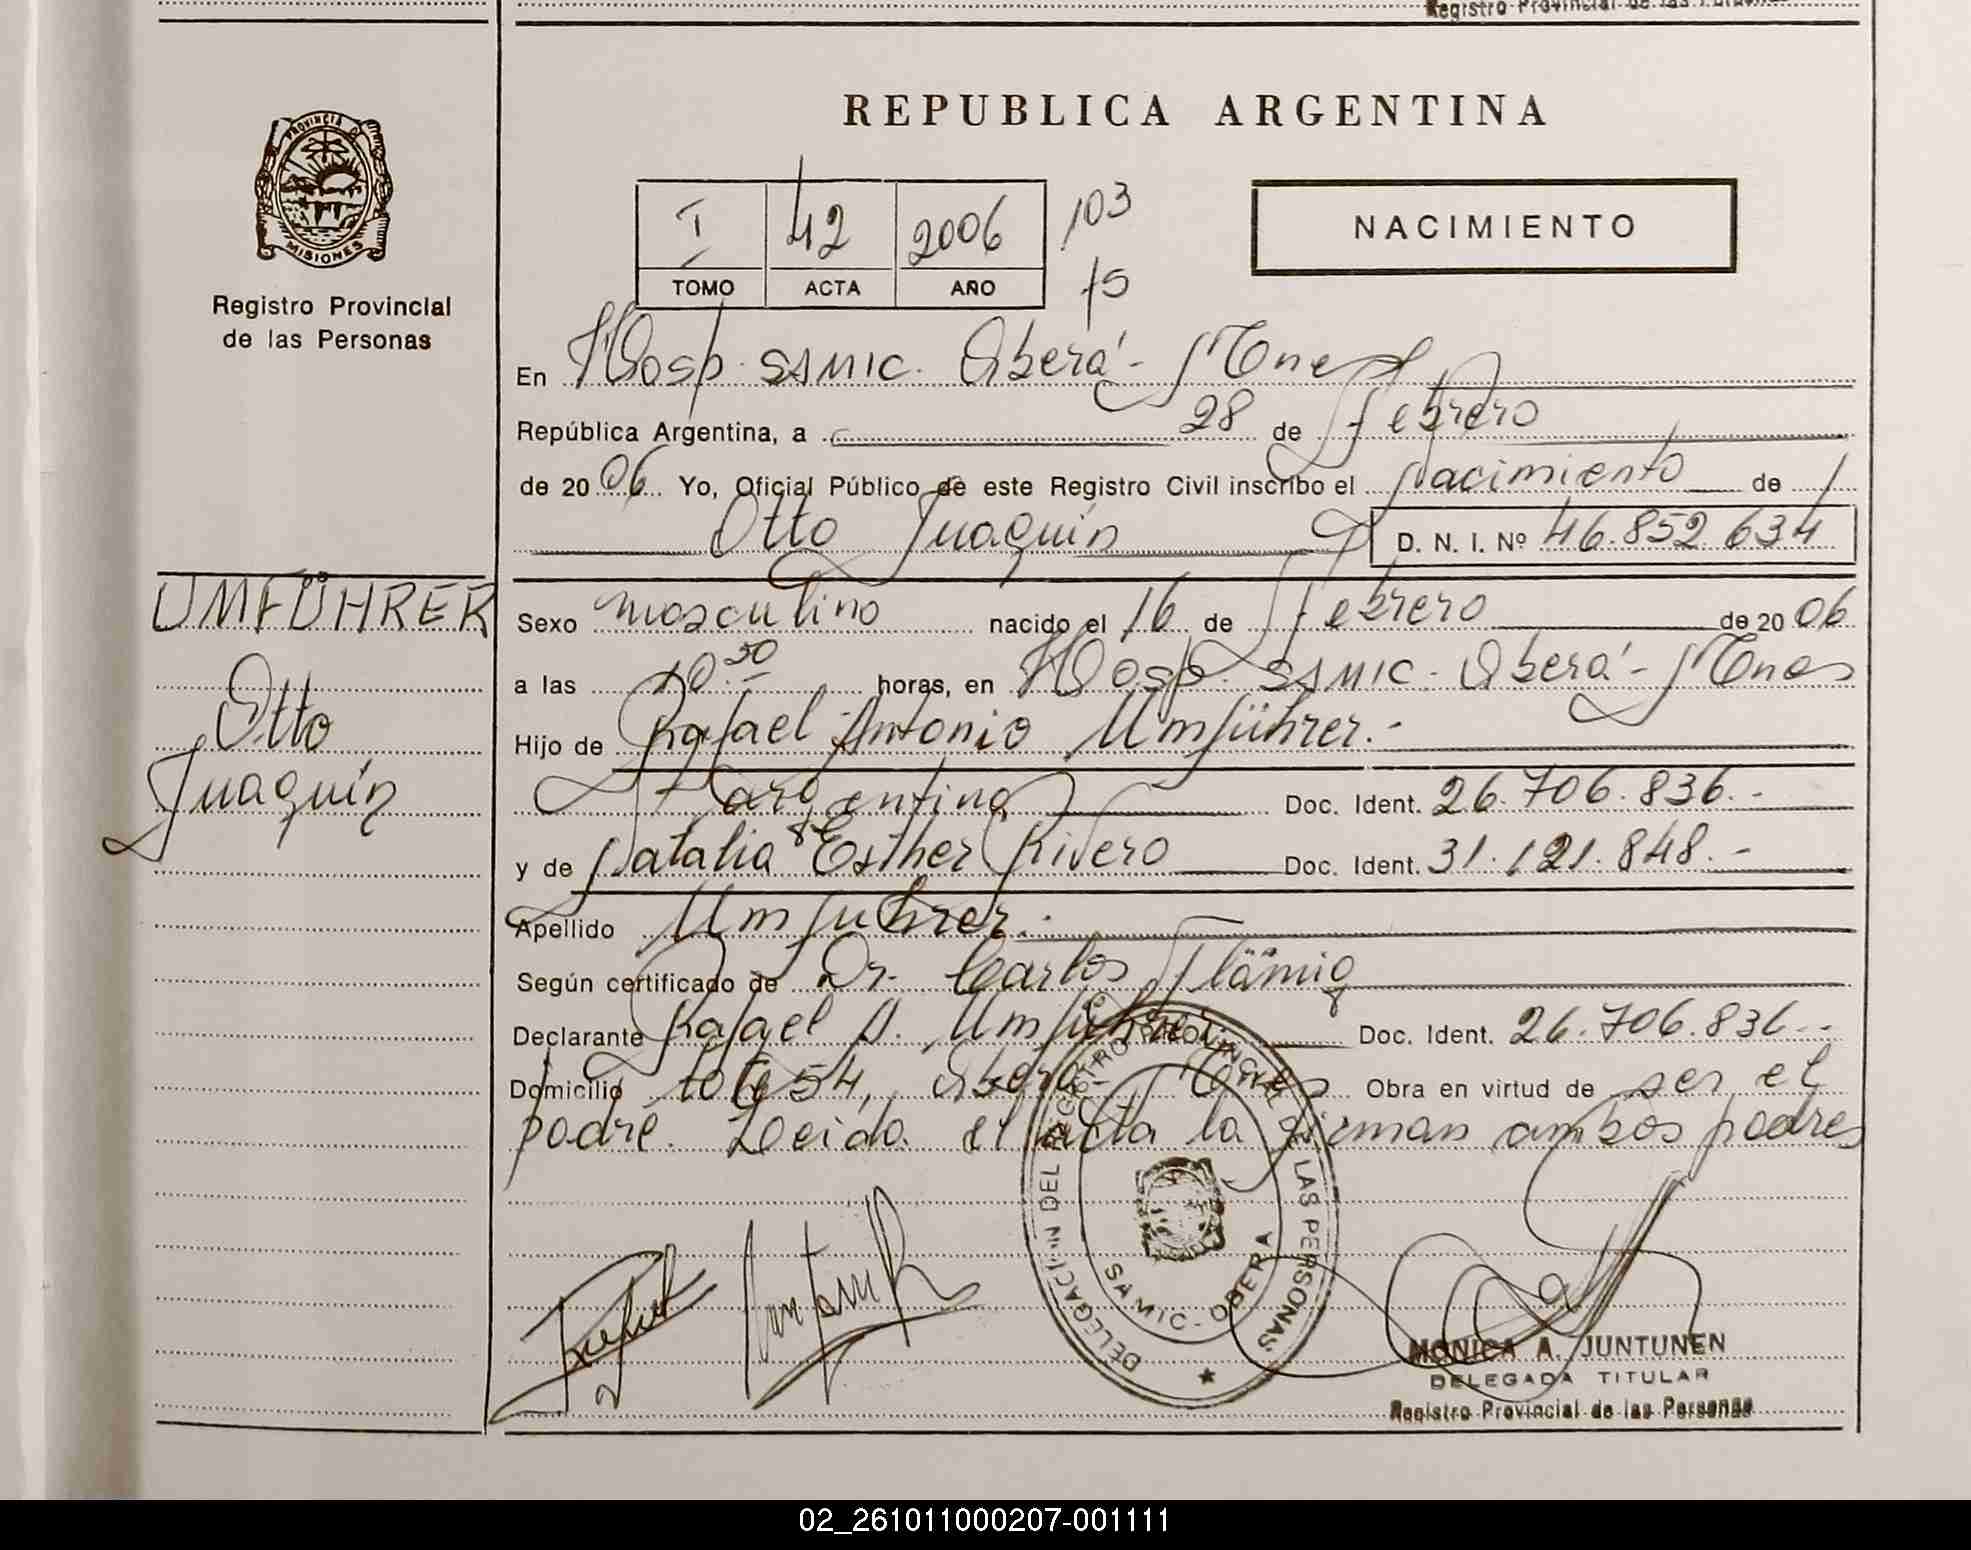 Registro Provincial de las Personas
PROVINCIA D
MISIONES
Registro Provincial
de las Personas
REPUBLICA ARGENTINA
I 42 2006 103
TOMO ACTA AÑO 15
NACIMIENTO
En Hosp. SAMIC. Oberá - Mnes
República Argentina, a 28 de febrero
de 2006 Yo, Oficial Público de este Registro Civil inscribo el Nacimiento de
Otto Juaquín D. N. I. Nº 46.852.634
UMFÜHRER
Otto
Juaquín
Sexo masculino nacido el 16 de febrero de 2006
a las 10.50 horas, en Hosp. SAMIC - Oberá - Mnes
Hijo de Rafael Antonio Umführer.-
argentino Doc. Ident. 26.706.836.-
y de Natalia Esther Rivero Doc. Ident. 31.121.848.-
Apellido Umfuhrer.
Según certificado de Dr. Carlos Flämig
Declarante Rafael A. Umführer Doc. Ident. 26.706.836.-
Domicilio 54, Oberá Mnes Obra en virtud de ser el
padre. Leida el acta la firman ambos padres
DELEGACION DEL REGISTRO PROVINCIAL DE LAS PERSONAS
SAMIC - OBERA
MONICA A. JUNTUNEN
DELEGADA TITULAR
Registro Provincial de las Personas
02_261011000207-001111